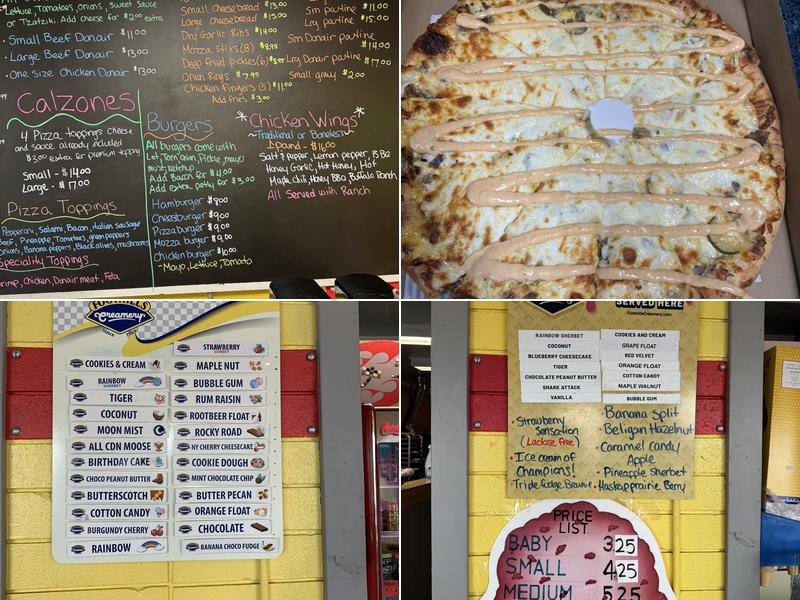 Lettuce, Tomatoes, onions, sweet sauce
or Tzatziki. Add cheese for $2.00 extra
· Small Beef Donair $11.00
· Large Beef Donair $13.00
· One size Chicken Donair $13.00
Small cheesebread $13.00
Large cheesebread $15.00
Dry Garlic Ribs $14.00
Mozza sticks (8) $8.95
Deep fried pickles (6) $8.95
Onion Rings $7.95
Chicken Fingers (5) $11.00
Add fries $3.00
Sm poutine $11.00
Lrg poutine $15.00
Sm Donair poutine
$14.00
Lrg Donair poutine
$17.00
Small gravy $2.00
Calzones
4 Pizza toppings cheese
and sauce already included
$3.00 extra for premium topping
Small - $14.00
Large - $17.00
Pizza Toppings
Pepperoni, Salami, Bacon, Italian sausage
Beef, Pineapple, Tomatoes, green peppers
Onions, Banana peppers, Black olives, mushrooms
Speciality Toppings
Chicken, Donair meat, Feta
Burgers
All burgers come with
Let, Tom, onion, Pickle, mayo
must, ketchup
Add Bacon for $4.00
Add extra patty for $3.00
Hamburger $8.00
Cheeseburger $9.00
Pizza burger $9.00
Mozza burger $9.00
chicken burger $10.00
- Mayo, Lettuce, Tomato
*Chicken Wings*
Traditional or Boneless
1 pound -
Salt & pepper, Lemon pepper, BBQ
Honey Garlic, Hot Honey, Hot
Maple chili, Honey BBQ, Buffalo Ranch
All Served with Ranch
FOOTHILLS
Creamery
STRAWBERRY
SORBET
COOKIES & CREAM
MAPLE NUT
RAINBOW
SHERBET
BUBBLE GUM
TIGER
RUM RAISIN
COCONUT
ROOTBEER FLOAT
MOON MIST
ROCKY ROAD
ALL CDN MOOSE
NY CHERRY CHEESECAKE
BIRTHDAY CAKE
COOKIE DOUGH
CHOCO PEANUT BUTTER
MINT CHOCOLATE CHIP
BUTTERSCOTCH
BUTTER PECAN
COTTON CANDY
ORANGE FLOAT
BURGUNDY CHERRY
CHOCOLATE
RAINBOW
BANANA CHOCO FUDGE
SERVED HERE
FoothillsCreamery.com
RAINBOW SHERBET
COCONUT
BLUEBERRY CHEESECAKE
TIGER
CHOCOLATE PEANUT BUTTER
SHARK ATTACK
VANILLA
COOKIES AND CREAM
GRAPE FLOAT
RED VELVET
ORANGE FLOAT
COTTON CANDY
MAPLE WALNUT
BUBBLE GUM
· Strawberry
Sensation
(Lactose free)
· Ice cream of
Champions!
· Triple fudge Brownie
· Banana Split
· Beligan Hazelnut
· Caramel candy
Apple
· Pineapple Sherbet
· Haskap prairie Berry
PRICE
LIST
BABY 3.25
SMALL 4.25
MEDIUM 5.25